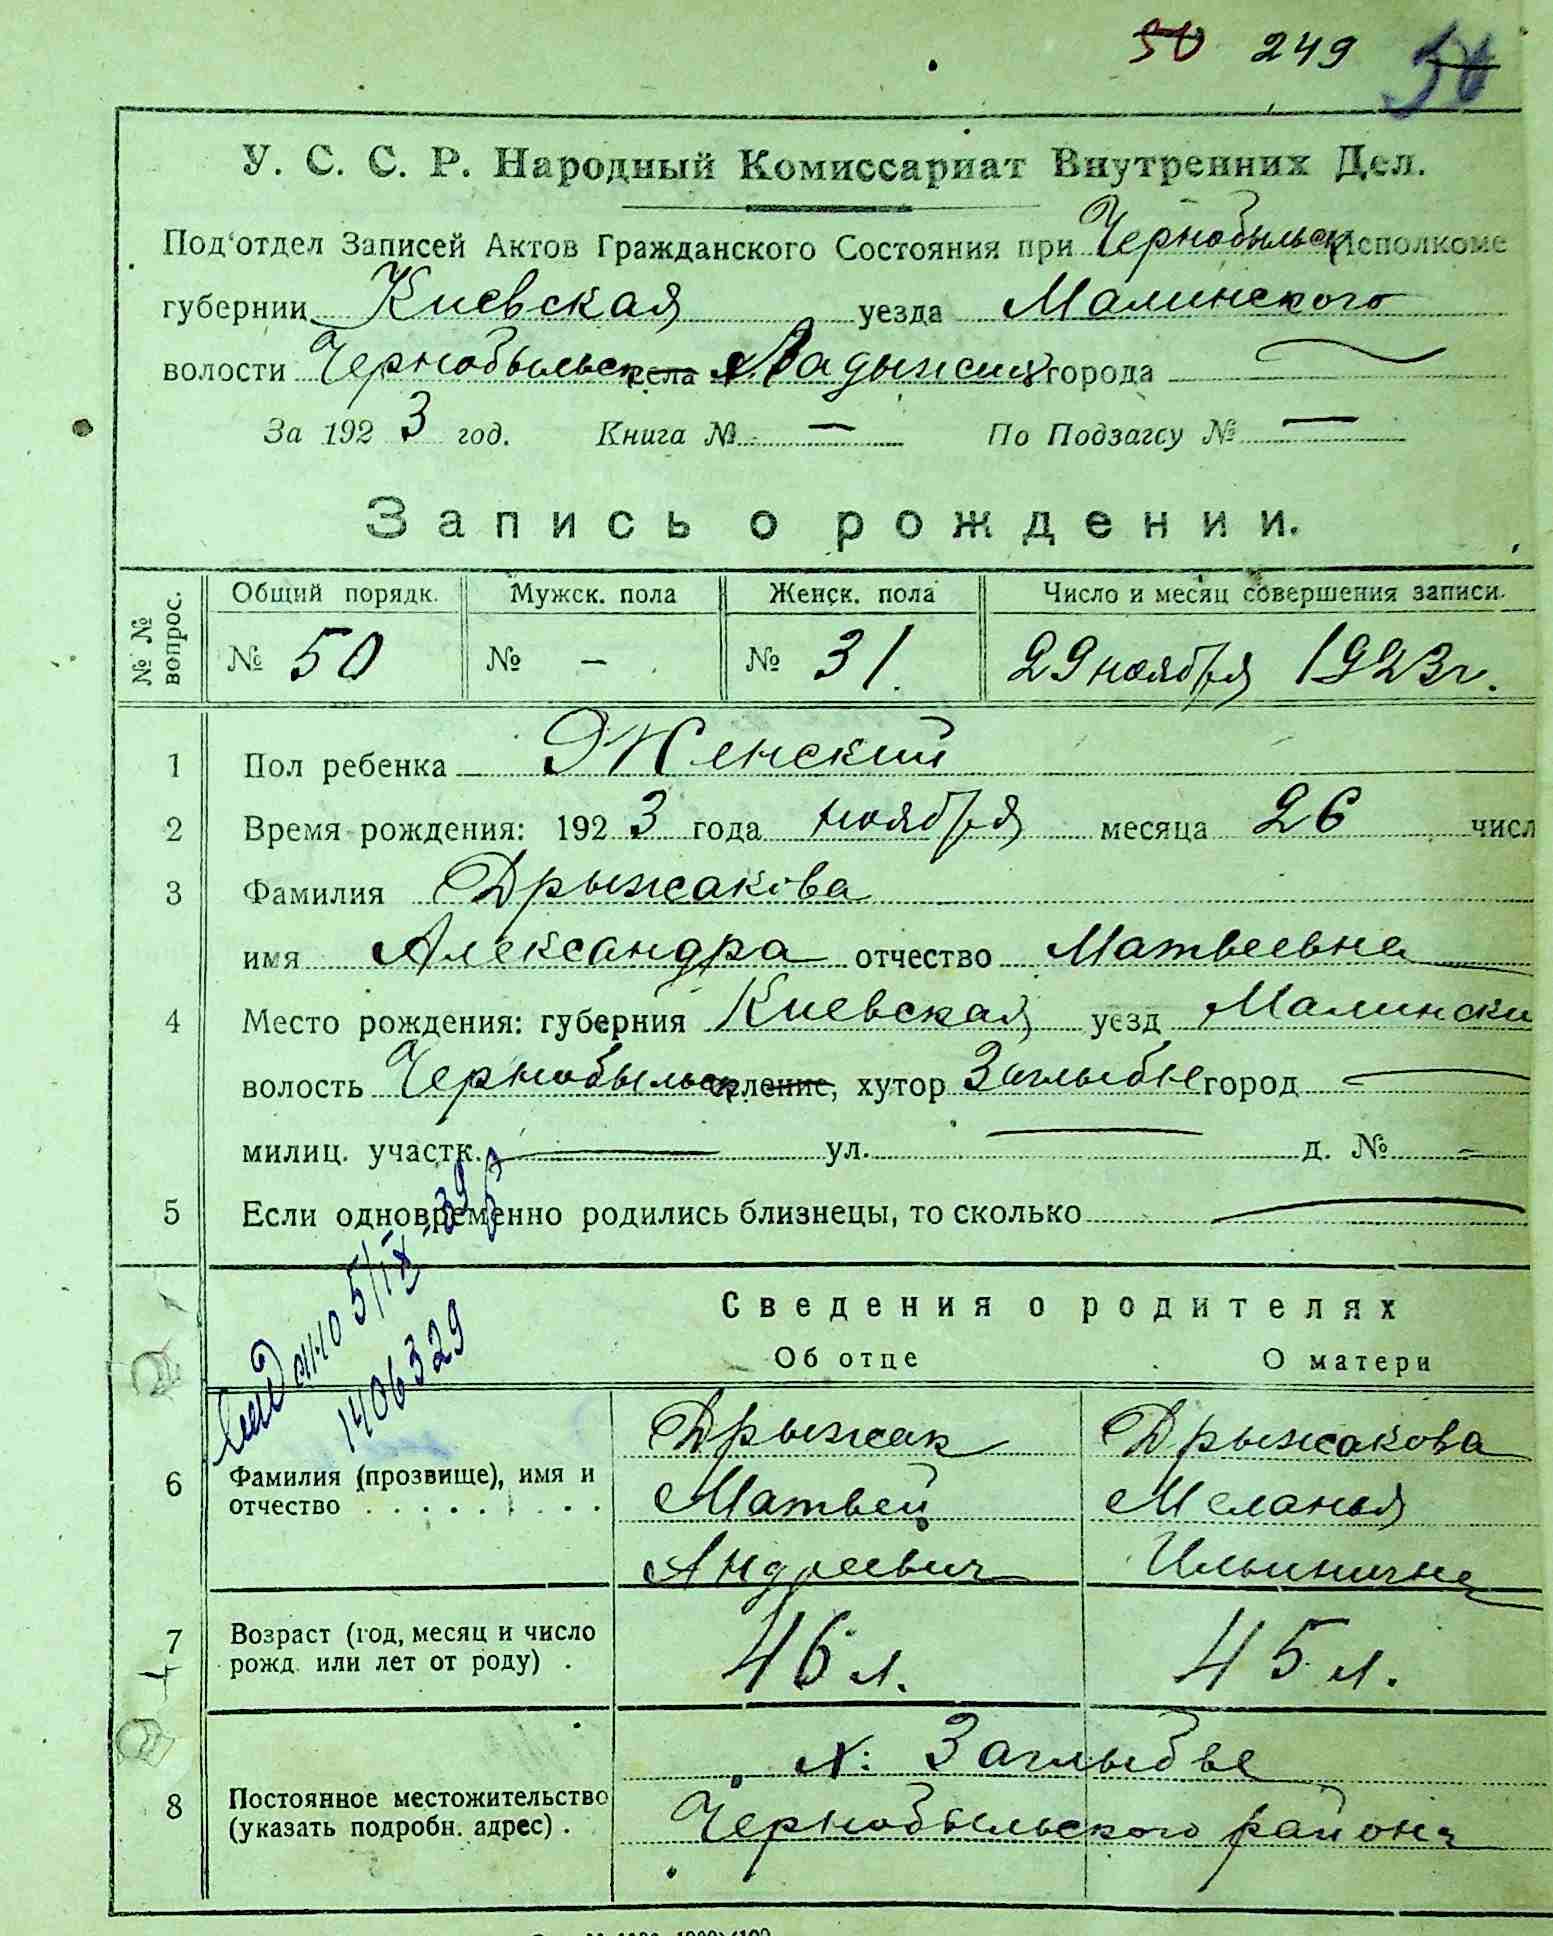 50 249 50
У. С. С. Р. Народный Комиссариат Внутренних Дел.
Под'отдел Записей Актов Гражданского Состояния при Чернобыльск Исполкоме
губернии Киевская уезда Малинского
волости Чернобыльск села Ладыжич города —
За 1923 год. Книга № — По Подзагсу № —
Запись о рождении.
№ № вопрос. Общий порядк. Мужск. пола Женск. пола Число и месяц совершения записи.
№ 50 № — № 31. 29 ноября 1923 г.
1 Пол ребенка Женский
2 Время рождения: 1923 года ноября месяца 26 числ
3 Фамилия Дрыжакова
имя Александра отчество Матвеевна
4 Место рождения: губерния Киевская уезд Малински
волость Чернобыльск селение, хутор Заглыбье город —
милиц. участк. — ул. — д. № —
5 Если одновременно родились близнецы, то сколько —
Видано 5/IX-39 р
1406329
Сведения о родителях
Об отце О матери
6 Фамилия (прозвище), имя и отчество
Дрыжак Дрыжакова
Матвей Меланья
Андреевич Ильинична
7 Возраст (год, месяц и число рожд. или лет от роду) . 46 л. 45 л.
8 Постоянное местожительство (указать подробн. адрес) .
х: Заглыбье
Чернобыльского района